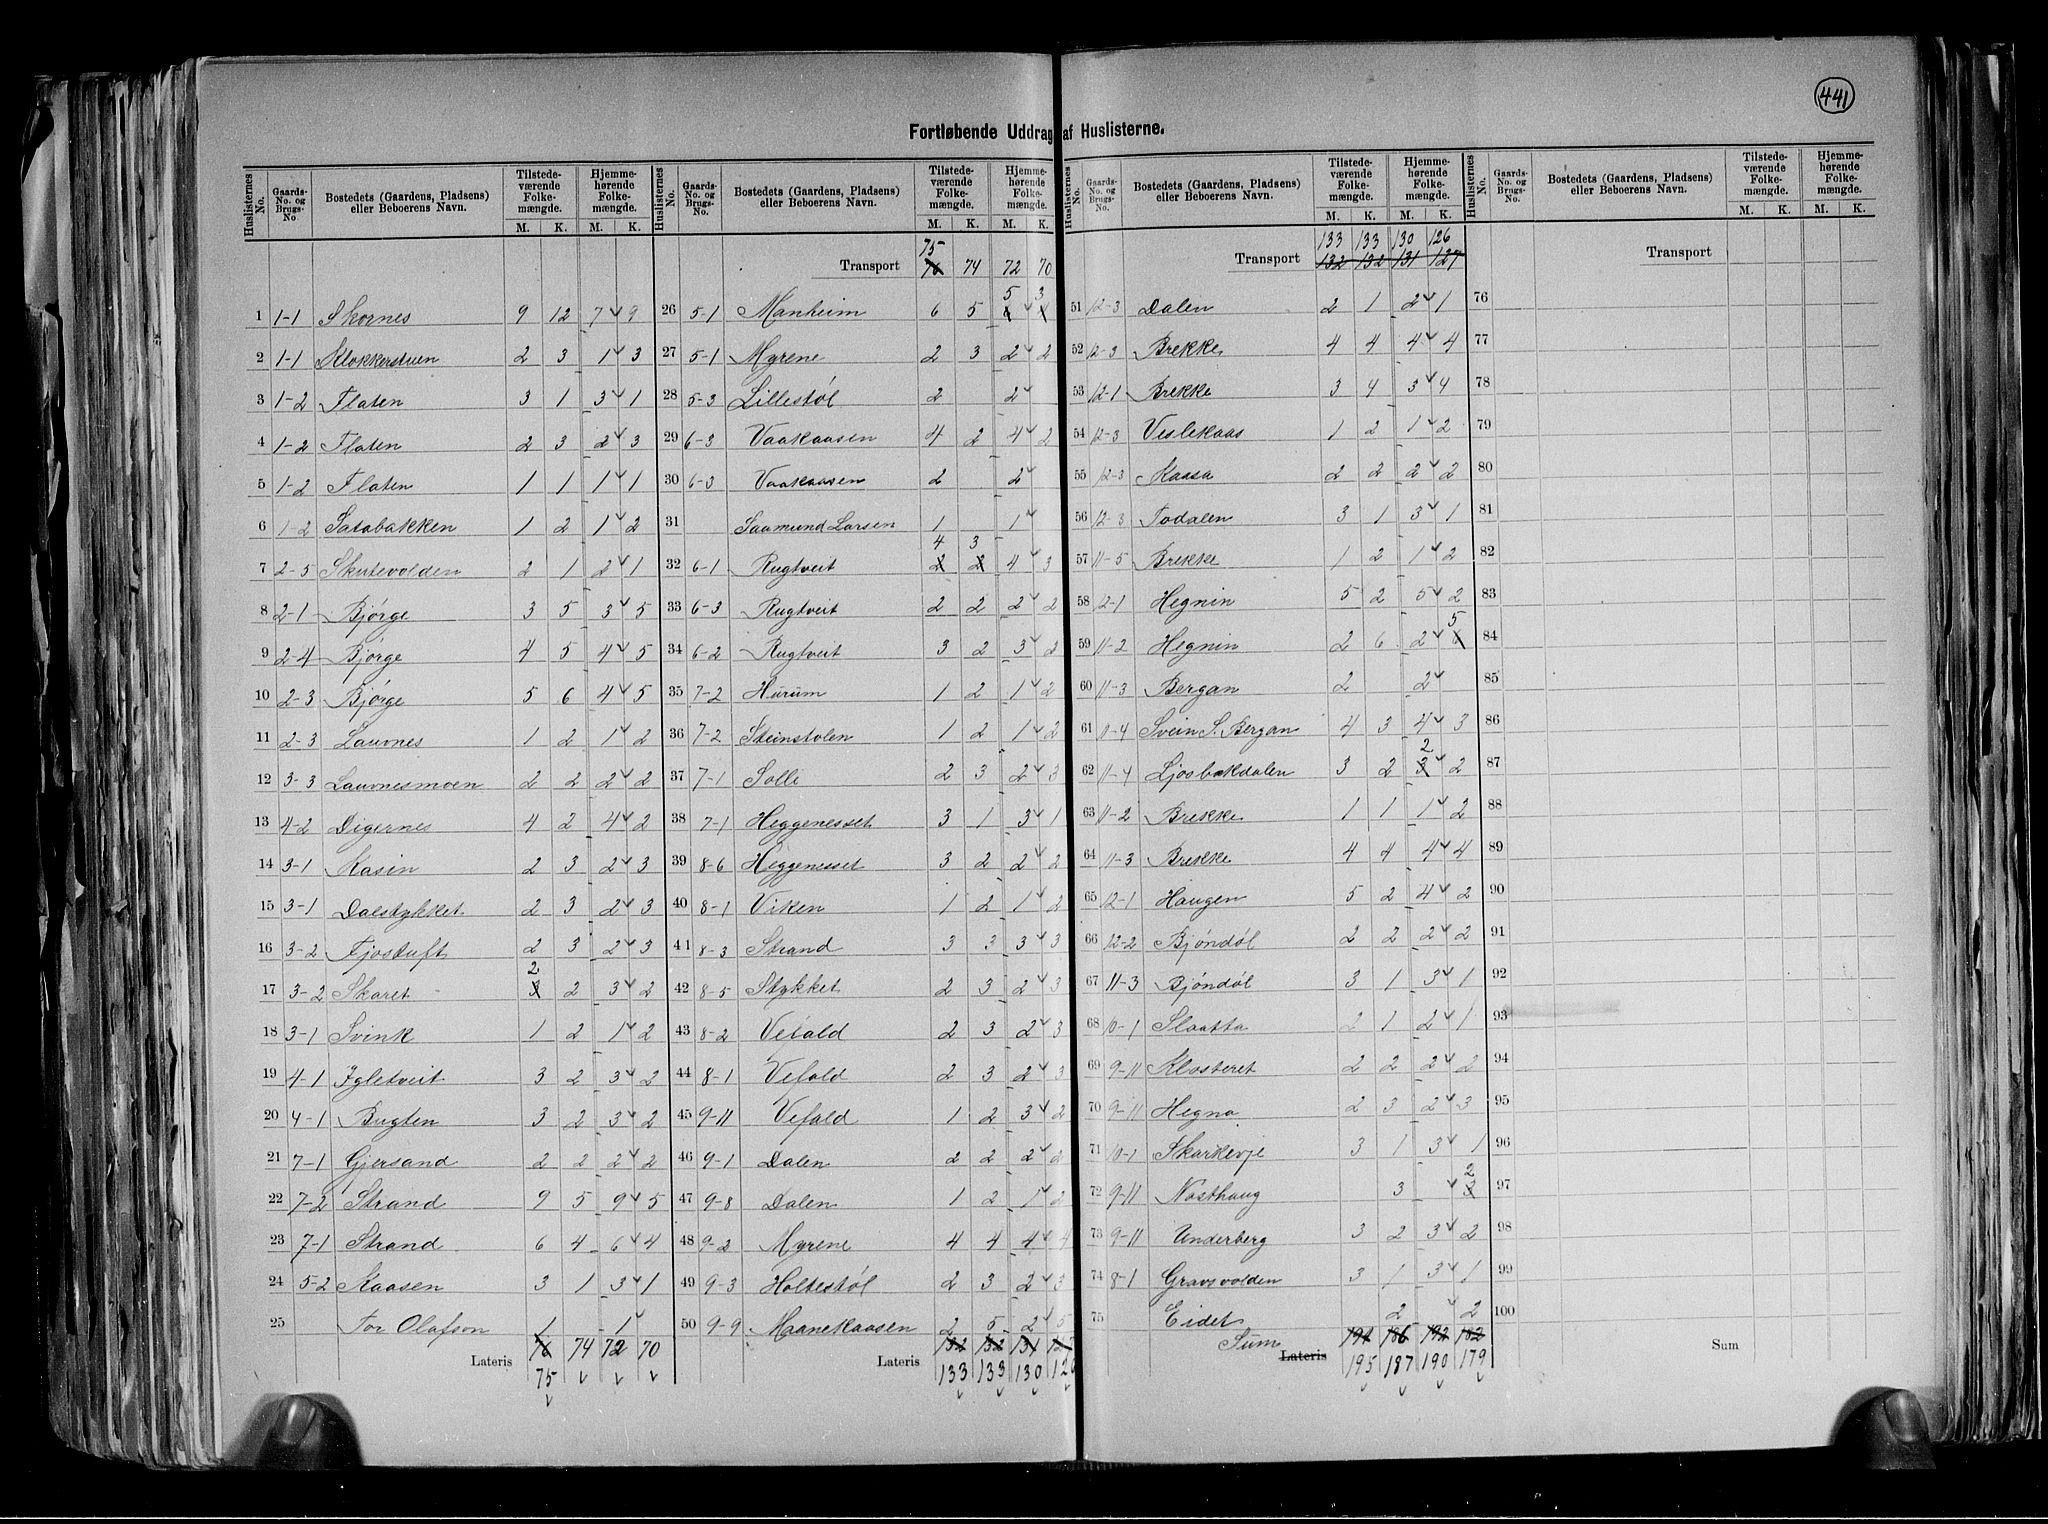 441
Fortløbende Uddrag af Huslisterne.
Huslisternes No. Gaards-No. og Brugs-No Bostedets (Gaardens, Pladsens) eller Beboerens Navn. Tilstedeværende Folkemængde. M. K. Hjemmehørende Folkemængde. M. K.
1 1-1 Skornes 9 12 7 9
2 1-1 Klokkerstuen 2 3 1 3
3 1-2 Flaten 3 1 3 1
4 1-2 Flaten 2 3 2 3
5 1-2 Flaten 1 1 1 1
6 1-2 Satabakken 1 2 1 2
7 2-5 Skutevolden 2 1 2 1
8 2-1 Bjørge 3 5 3 5
9 2-4 Bjørge 4 5 4 5
10 2-3 Bjørge 5 6 4 5
11 2-3 Lauvnes 1 2 1 2
12 3-3 Lauvnesmoen 2 2 2 2
13 4-2 Digernes 4 2 4 2
14 3-1 Kasin 2 3 2 3
15 3-1 Dalstykket 2 3 2 3
16 3-2 Fjostuft 2 3 2 3
17 3-2 Skaret 2 3 2 3 2
18 3-1 Svink 1 2 1 2
19 4-1 Igletveit 3 2 3 2
20 4-1 Bugten 3 2 3 2
21 7-1 Gjersand 2 2 2 2
22 7-2 Strand 9 5 9 5
23 7-1 Strand 6 4 6 4
24 5-2 Kaasen 3 1 3 1
25 Tor Olafson 1 1
Lateris 76 74 72 70
75
Huslisternes No. Gaards-No. og Brugs-No. Bostedets (Gaardens, Pladsens) eller Beboerens Navn. Tilstedeværende Folkemængde. M. K. Hjemmehørende Folkemængde. M. K.
75
Transport 76 74 72 70
5 3
26 5-1 Manheim 6 5
27 5-1 Myrene 2 3 2 2
28 5-3 Lillestøl 2 2
29 6-3 Vaakaasen 4 2 4 2
30 6-3 Vaakaasen 2 2
31 Saamund Larsen 1 1
4 3
32 6-1 Rugtveit 2 2 4 3
33 6-3 Rugtveit 2 2 2 2
34 6-2 Rugtveit 3 2 3 2
35 7-2 Hurum 1 2 1 2
36 7-2 Steinstolen 1 2 1 2
37 7-1 Solli 2 3 2 3
38 7-1 Heggenesset 3 1 3 1
39 8-6 Heggenesset 3 2 2 2
40 8-1 Viken 1 2 1 2
41 8-3 Strand 3 3 3 3
42 8-5 Stykket 2 3 2 3
43 8-2 Vefald 2 3 2 3
44 8-1 Vefald 2 3 2 3
45 9-11 Vefald 1 2 3 2
46 9-1 Dalen 2 2 2 2
47 9-8 Dalen 1 2 1 2
48 9-2 Myrene 4 4 4 4
49 9-3 Holtestøl 2 3 2 3
50 9-9 Maanekaasen 2 5 2 5
Lateris 132 132 131
133 133 130
Huslisternes No. Gaards-No. og Brugs-No. Bostedets (Gaardens, Pladsens) eller Beboerens Navn. Tilstedeværende Folkemængde. M. K. Hjemmehørende Folkemængde. M. K.
133 133 130 126
Transport 132 132 131 127
51 12-3 Dalen 2 1 2 1
52 12-3 Brekke 4 4 4 4
53 12-1 Brekke 3 4 3 4
54 12-3 Veslekaas 1 2 1 2
55 12-3 Kaasa 2 2 2 2
56 12-3 Todalen 3 1 3 1
57 11-5 Brekke 1 2 1 2
58 12-1 Hegnin 5 2 5 2
5
59 11-2 Hegnin 2 6 2 6
60 11-3 Bergan 2 2
61 11-4 Svein S. Bergan 4 3 4 3
2
62 11-4 Ljosbakdalen 3 2 3 2
63 11-2 Brekke 1 1 1 2
64 11-3 Brekke 4 4 4 4
65 12-1 Haugen 5 2 4 2
66 12-2 Bjøndøl 2 2 2 2
67 11-3 Bjøndøl 3 1 3 1
68 10-1 Slaatta 2 1 2 1
69 9-11 Klosteret 2 2 2 2
70 9-11 Hegna 2 3 2 3
71 10-1 Skarkevje 3 1 3 1
2
72 9-11 Nosthaug 3 3
73 9-11 Underberg 3 2 3 2
74 8-1 Gravsvolden 3 1 3 1
75 Eidet 2 2
Sum Lateris 194 186 192 182
195 187 190 179
Huslisternes No. Gaards-No. og Brugs-No. Bostedets (Gaardens, Pladsens) eller Beboerens Navn. Tilstedeværende Folkemængde. M. K. Hjemmehørende Folkemængde. M. K.
Transport
76
77
78
79
80
81
82
83
84
85
86
87
88
89
90
91
92
93
94
95
96
97
98
99
100
Sum